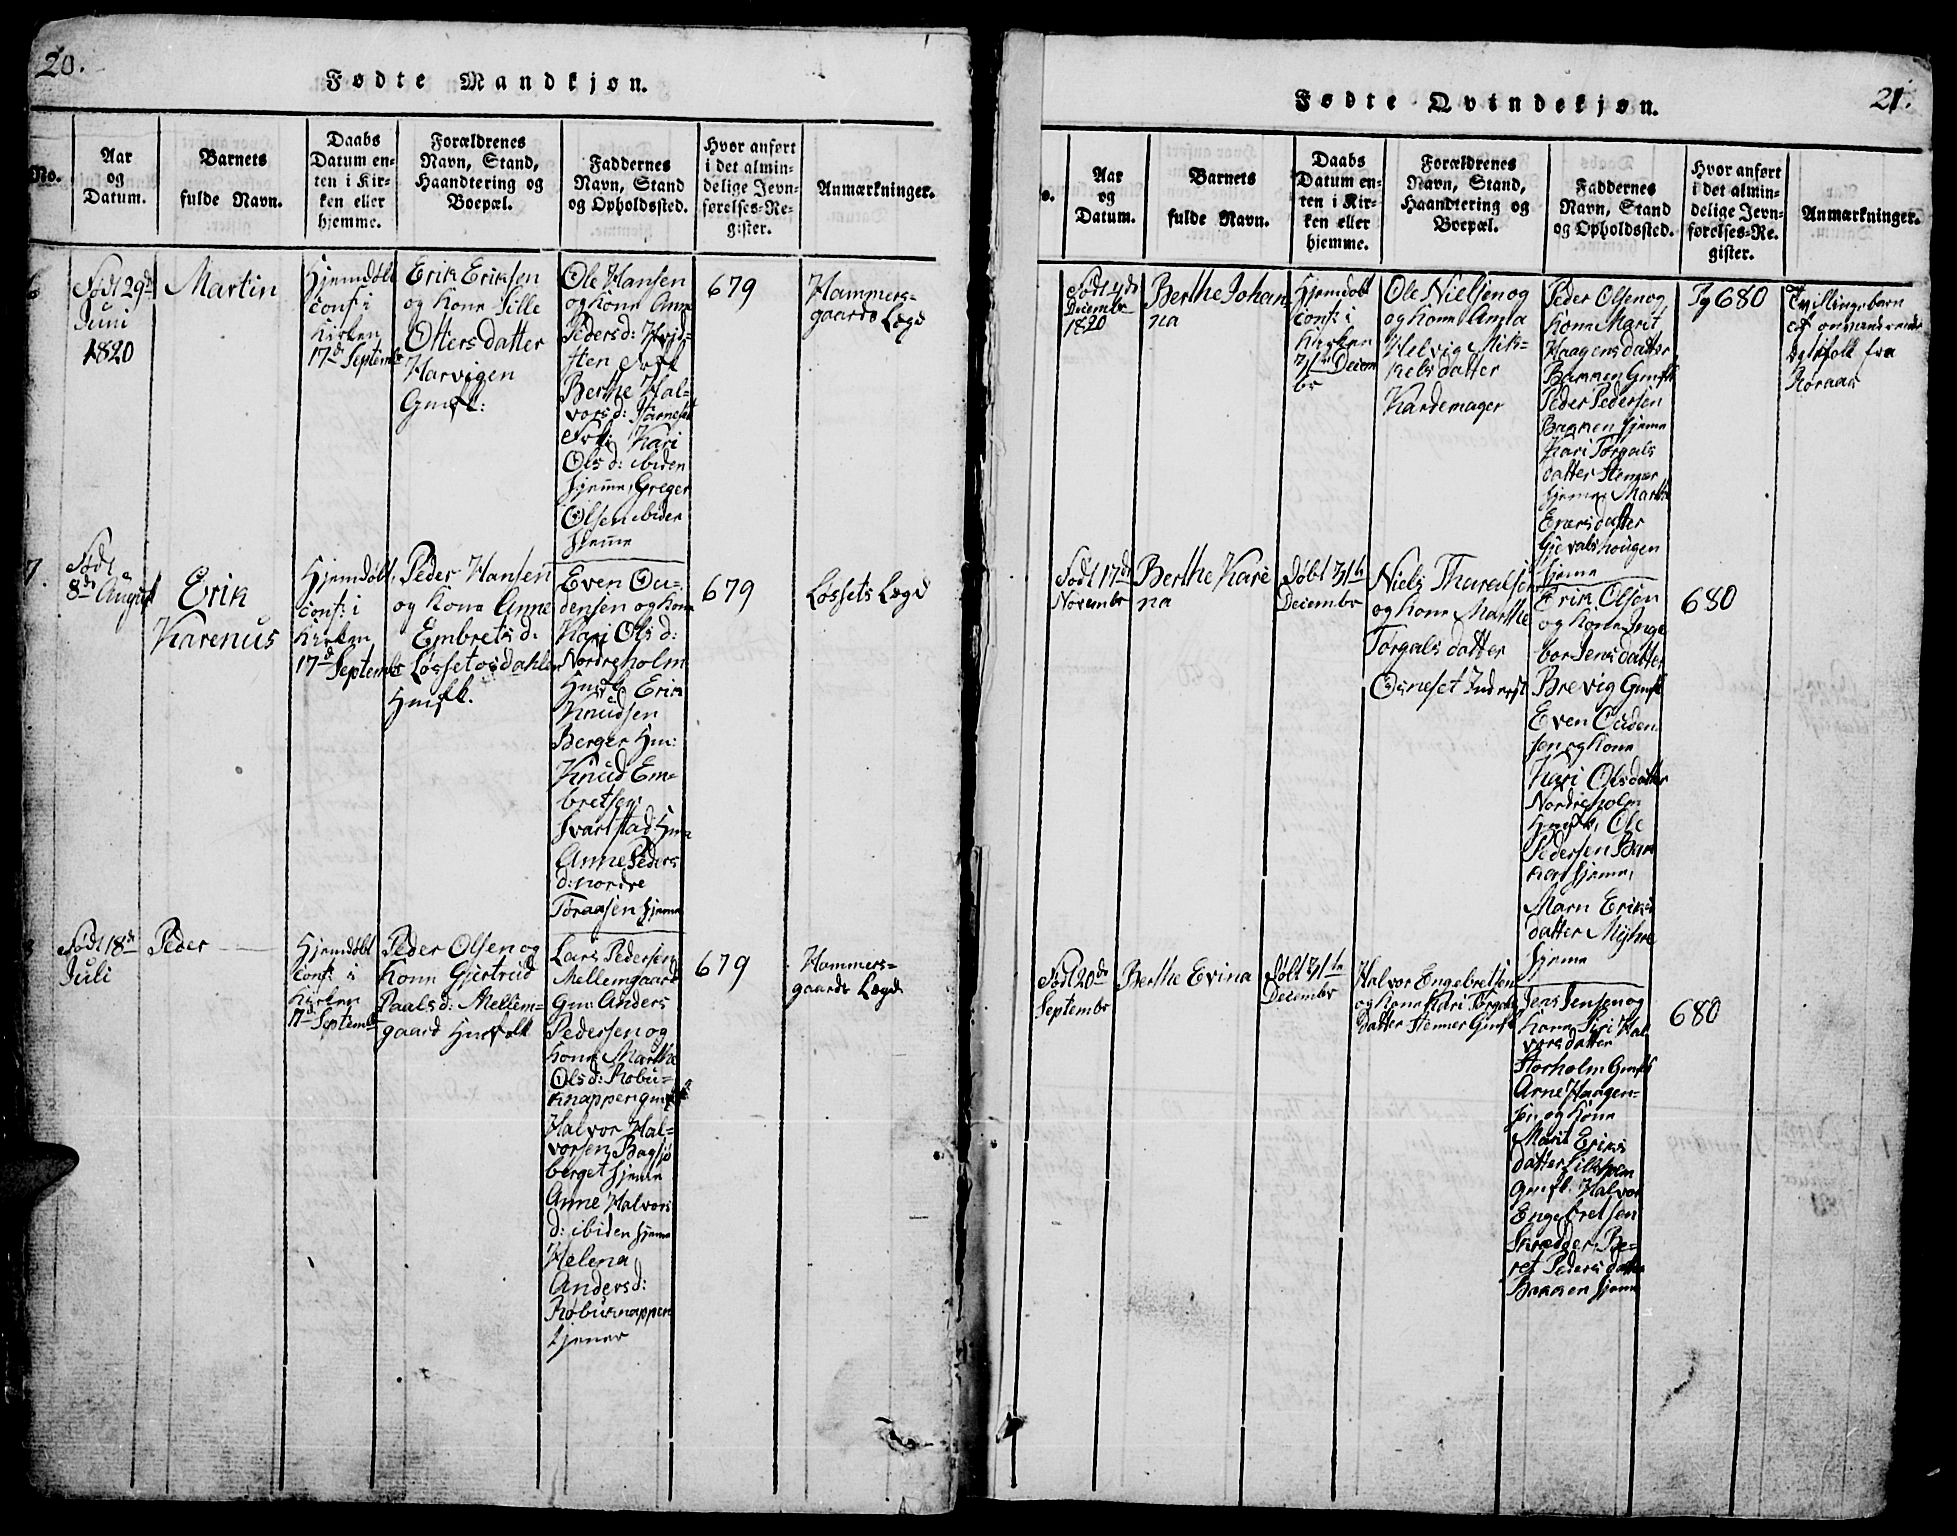 20.
Fødte Mandkjøn.
No.
Aar
og
Datum.
Barnets
fulde Navn.
Daabs
Datum en-
ten i Kir-
ken eller
hjemme.
Forældrenes
Navn, Stand,
Haandtering og
Boepæl.
Faddernes
Navn, Stand
og Opholdssted.
Hvor anført
i det almin-
delige Jevn-
førelses-Re-
gister.
Anmærkninger.
6
Født 29de
Juni
1820
Martin
Hjemdøbt
conf: i
Kirken
17d Septembr
Erik Eriksen
og Kone Sille
Ottersdatter
Harvigen
Gmfk:
Ole Hansen
og Kone Anne
Pedersd:
Berthe Hal-
vorsd:
Kari
Olsd: ibiden
Greger
Olsen ibiden
679
Hammers-
gaards Lægd
7.
Født
8de August
Erik
Karenus
Hjemdøbt
conf: i
Kirken
17d Septembr
Peder Hansen
og Kone Anne
Embretsd:
Løssetosdahlen
Hmfk.
Even Ou-
densen og Kone
Kari Olsd:
Nordreholm
Hmfk Erik
Knudsen
Berger Hm:
Knud Em-
bretsen
Svartstad Hm:
Anne Peders
d: nordre
Toraasen hjeme
679
Løssets Lægd
Født 18de
Juli
Peder
Hjemdøbt
conf: i
Kirken
17d Septembr
Peder Olsen og
Kone Gjertrud
Paalsd: Mellem-
gaard Husfolk
Lars Pedersen
Mellemgaard
Gm: Anders
Pedersen og
Kone Marthe
Olsd: Robu-
knappen gmfk
Halvor Hal-
vorsen Bagsjø
berget hjeme
Anne Halvors
d: ibiden hjeme
Helena
Andersd:
Robuknappen
679
Hammers-
gaards Lægd
21.
Fødte Qvindekjøn.
o.
Aar
og
Datum.
Barnets
fulde Navn.
Daabs
Datum en-
ten i Kir-
ken eller
hjemme.
Forældrenes
Navn, Stand,
Haandtering og
Boepæl.
Faddernes
Navn, Stand
og Opholdssted.
Hvor anført
i det almin-
delige Jevn-
førelses-Re-
gister.
Anmærkninger.
Født 4de
Decembr
1820
Berthe Johan
na
Hjemdøbt
conf: i
Kirken
31te Decem
br
Ole Nielsen og
og Kone Anna
Helvig Mik-
kelsdatter
Kardemager
Peder Olsen og
Kone Marit
Haagensdatter
Bakken Gmfk
Peder Pedersen
Bakken hjeme
Kari Torgals
datter Stemær
hjeme Marthe
Enersdatter
Gjevalshougen
hjeme
Pg 680
Tvillingebarn
af omvandrende
fra
Røraas
Født 17de
Novembr
Berthe Kare
na
Døbt 31te
Decembr
Niels Tharalsen
og Kone Marthe
Torgalsdatter
Osneset Inderst
Erik Olsen
og Kone Inge
bor Jensdatter
Brevig Gmfk
Even Ouden
sen og Kone
Kari Olsdatter
Nordreholm
Hmfk, Ole
Pedersen Bak
ken hjeme,
Marn Eriks
datter Myhre
hjeme
680
Født 20de
Septembr
Berthe Evina
Døbt 31te
Decembr
Halvor Engebretsen
og Kone Kari Torgals
datter Stemer Gmfk
Jens Jensen og
Kone Siri Hal
vorsdatter
Storholm Gmfk
Arne Haagen-
sen og Kone
Marit Eriks
datter Lilleholm
Gmfk. Halvor
Engebretsen
Skrædder, Be-
ret Pedersdatter
Bakken hjeme
680